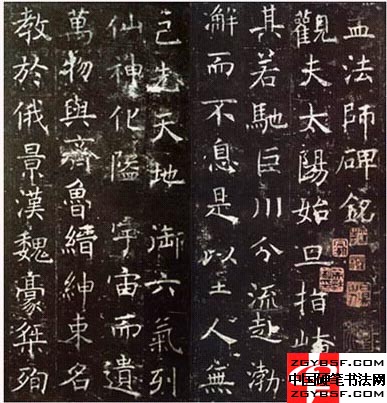 孟法師碑銘
觀夫太陽始旦指崦
其若馳巨川分流赴渤
澥而不息是以至人無
己先天地 御六氣列
仙神化隘 宇宙而遺
萬物與齊魯縉紳束名
教於俄景漢魏豪桀殉
ZGYBSF.COM
中国硬笔书法网
ZGYBSF.COM